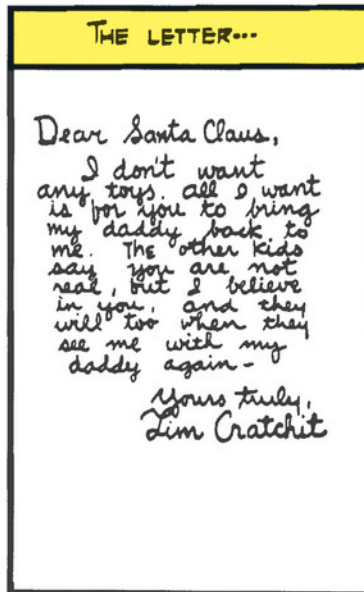 THE LETTER...
Dear Santa Claus,
I don't want
any toys. all I want
is for you to bring
my daddy back to
me. The other kids
say you are not
real, but I believe
in you, and they
will too when they
see me with my
daddy again-
Yours truly,
Tim Cratchit